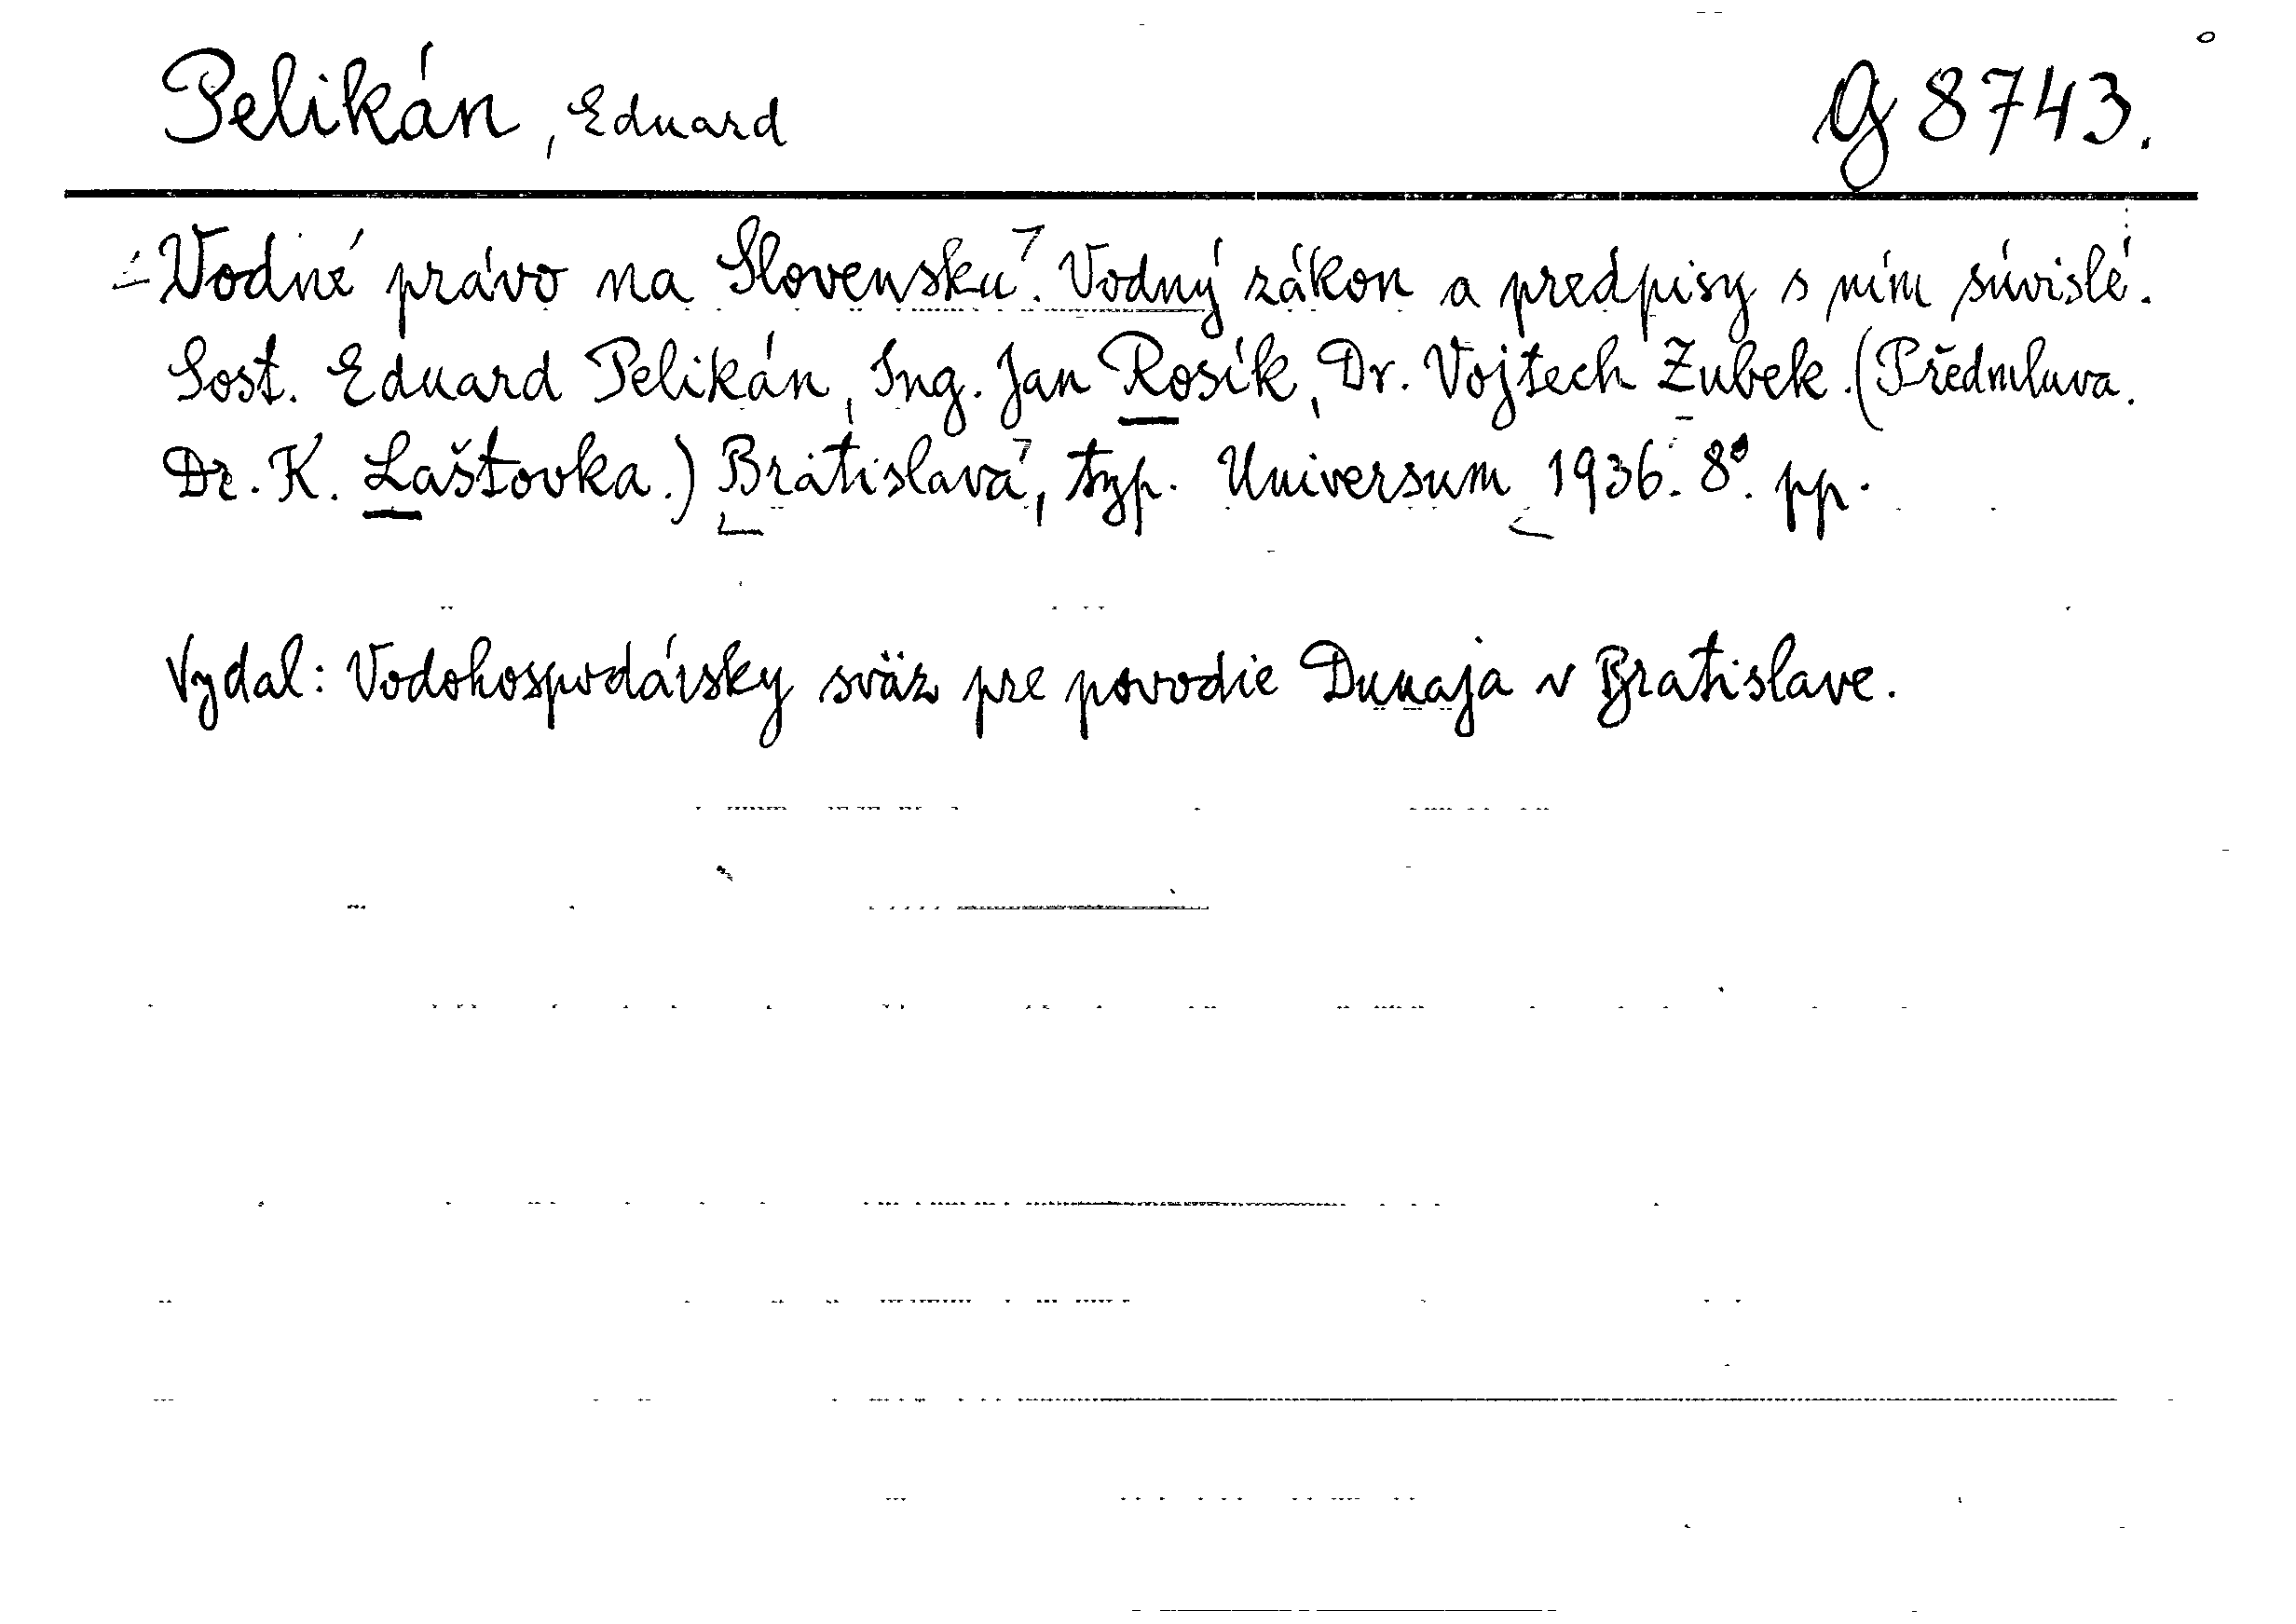 Pelikán, Eduard G 8743.
Vodné právo na Slovensku. Vodný zákon a predpisy s ním súvislé.
Sost. Eduard Pelikán, Ing. Jan Rosík, Dr. Vojtech Zubek. (Předmluva.
Dr. K. Laštovka.) Bratislava, typ. Universum 1936. 8°. pp.
Vydal: Vodohospodársky sväz pre povodie Dunaja v Bratislave.